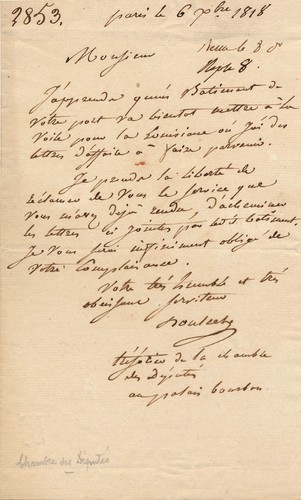 2853.
paris le 6 xbre 1818
Monsieur
Reçu le 8 d
Rep le 8.
J'apprends qu'un Batiment de
votre port va bientot mettre à la
voile pour la Louisiane ou j'ai des
lettres d'affaire à faire parvenir.
Je prends la liberté de
réclamer de vous le service que
vous m'avez déjà rendu, d'acheminer
les lettres ci jointes par led. batiment.
Je vous serai infiniment obligé de
votre Complaisance.
Votre très humble et très
obeissant serviteur
trésorier de la chambre
des Députés
au palais bourbon
Chambre des Députés